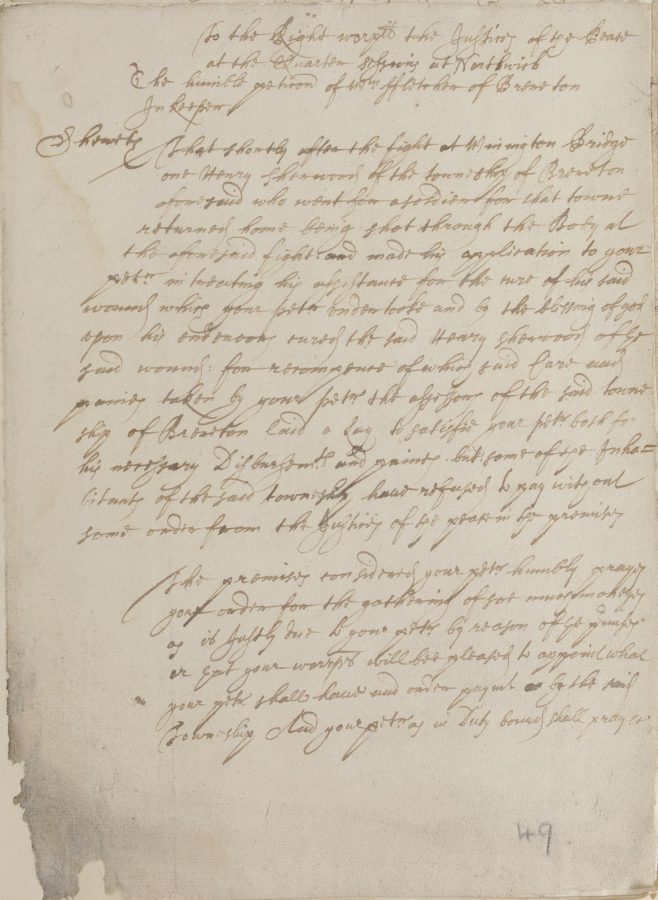 To the Right worpll the Justices of the Peace
at the Quarter sessions at Northwich
The humble peticon of Wm ffletcher of Brereton
Inkeeper
Sheweth That shortly after the fight at Winington Bridge
one Henry Sherwood of the township of Brereton
aforesaid who went for a soldier for that towne
returned home being shot through the Body at
the aforesaid fight and made his application to your
petr intreating his assistance for the cure of his said
wound which your petr undertooke and by the blessing of god
upon his endeavors cured the said Henry Sherwood of the
said wound: for recompence of which said Care and
paines taken by your petr the assessors of the said towne
ship of Brereton laid a Lay to satisfie your petr both for
his necessary Disbursemts and paines but some of the Inha=
bitants of the said township have refused to pay without
some order from the Justices of the peace in the premises
The premises considered your petr humbly prayes
your order for the gathering of soe much moneyes
as is Justly due to your petr by reason of the pmises
or that your worpps will bee pleased to appoint what
your petr shall have and order paymt by the said
Township And your petr as in Duty bound shall pray &c
49